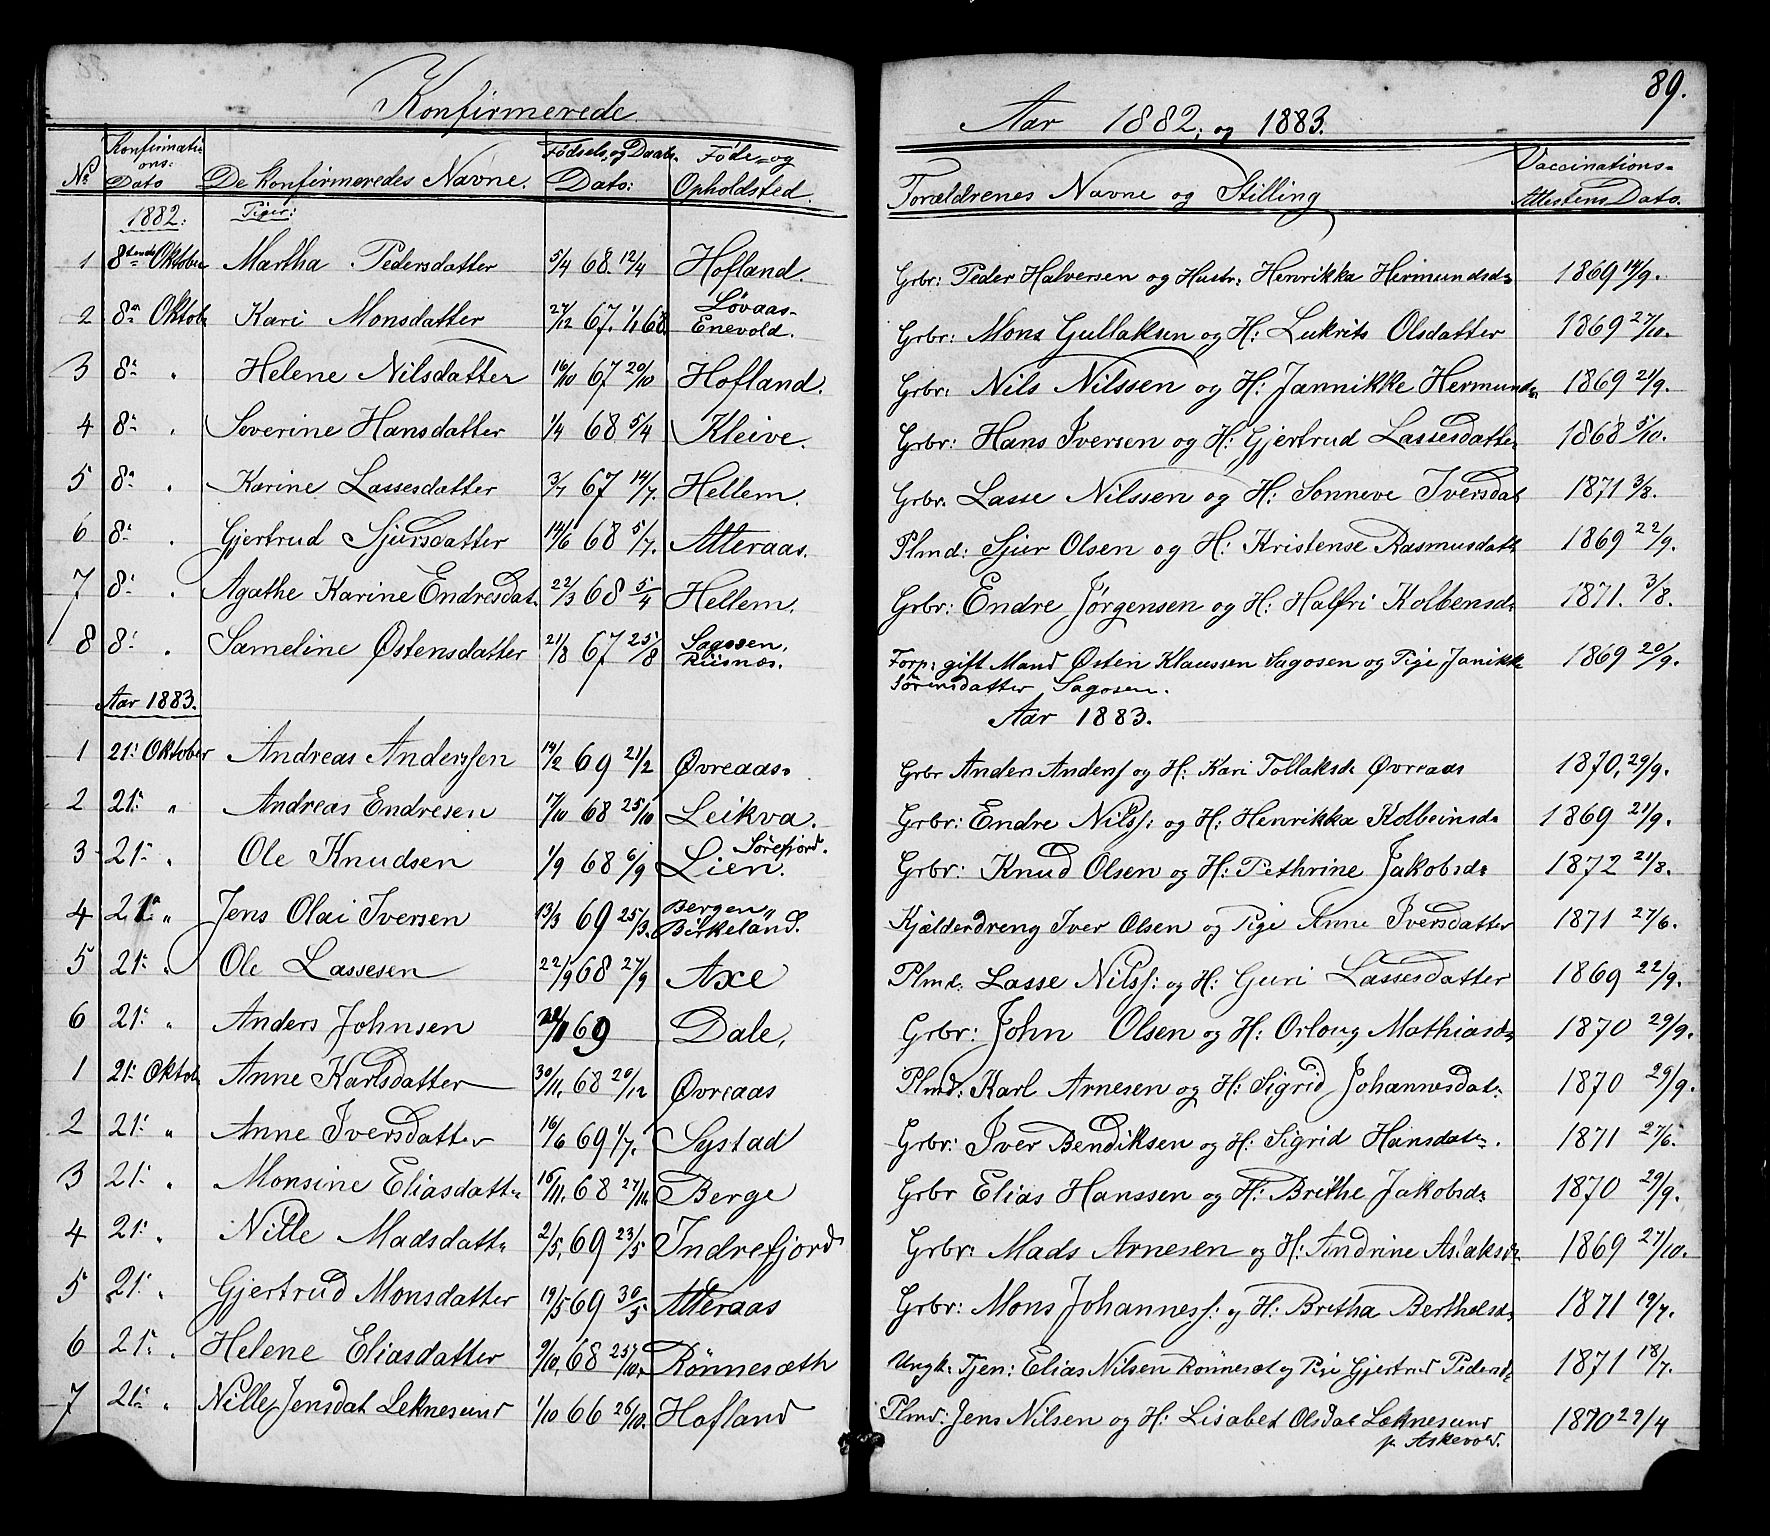 Konfirmerede
Aar 1882, og 1883.
89.
№ Konfirmations: Dato De Konfirmeredes Navne. Fødsels, og Daabs. Dato: Føde=og Opholdsted. Forældrenes Navne og Stilling Vaccinations= Attestens Dato.
1882: Piger:
1 8tende Oktober Martha Pedersdatter 5/4 68. 12/4 Hofland. Grbr: Peder Halversen og Hustr: Henrikka Hermundsd: 1869 14/9.
2 8de Oktob: Kari Monsdatter 27/12 67. 1/1 68. Løvaas- Enevold. Grbr: Mons Gullaksen og H: Lukrits Olsdatter 1869 27/10.
3 8: " Helene Nilsdatter 16/10 67 20/10 Hofland. Grbr: Nils Nilssen og H: Jannikke Hermunds: 1869 21/9.
4 8: " Severine Hansdatter 1/4 68 5/4 Kleive. Grbr: Hans Iversen og H: Gjertrud Lassesdatter 1868 5/10.
5 8: " Karine Lassesdatter 3/7 67 14/7. Hellem. Grbr. Lasse Nilssen og H: Sonneve Iversdat 1871 3/8.
6 8: " Gjertrud Sjursdatter 14/6 68 5/7. Atteraas. Plmd: Sjur Olsen og H: Kristense Rasmusdatt 1869 22/9.
7 8: " Agathe Karine Endresdat: 22/3 68 5/4 Hellem. Grbr: Endre Jørgensen og H: Halfri Kolbensd: 1871. 3/8.
8 8: " Sameline Østensdatter 21/8 67 25/8 Sagosen, Risnæs. Forp: gift Mand Østen Klaussen Sagosen og Pige Janikke 1869 20/9.
Sørensdatter Sagosen.
Aar 1883. Aar 1883.
1 21: Oktober Andreas Anderssen 14/2 69 21/2 Øvreaas. Grbr Anders Anders: og H: Kari Tollaksd: Øvreaas 1870, 29/9.
2 21: " Andreas Endresen 17/10 68 25/10 Leikva. Grbr: Endre Nilss: og H: Henrikka Kolbeinsd: 1869 21/9.
3 21: " Ole Knudsen 1/9 68 6/9 Lien. Sørefjord. Grbr: Knud Olsen og H: Pethrine Jakobsd: 1872 21/8.
4 21: " Jens Olai Iversen 13/3 69 25/3. Bergen " Birkeland. Kjælderdreng Iver Olsen og Pige Anne Iversdatter 1871 27/6.
5 21: " Ole Lassesen 22/9 68 27/9 Axe Plmd: Lasse Nilss: og H: Guri Lassesdatter 1869 22/9.
6 21: " Anders Johnsen 69 Dale, Grbr: John Olsen og H: Orloug Mathiasd: 1870 29/9.
1 21: Oktob: Anne Karlsdatter 30/11. 68 20/12 Øvreaas Plmd: Karl Arnesen og H: Sigrid Johannesdat: 1870 29/9.
2 21: " Anne Iversdatter 16/6 69 1/7. Systad Grbr: Iver Bendiksen og H: Sigrid Hansdat:. 1871 27/6.
3 21: " Monsine Eliasdatt: 16/11. 68 27/11. Berge Grbr Elias Hanssen og H: Brithe Jakobsd: 1870 29/9.
4 21: " Nille Madsdatt: 2/5. 69 23/5 Indrefjord Grbr: Mads Arnesen og H: Andrine Aslaksd: 1869 27/10.
5 21: " Gjertrud Monsdatter 19/5 69 30/5 Atteraas Grbr: Mons Johannes: og H: Britha Bertholsd: 1871 19/7.
6 21: " Helene Eliasdatter 9/10. 68 25/10. Rönnesæth Ungk: Tjen: Elias Nilsen Rönneset og Pige Gjertrud Pedersd: 1871 18/7.
7 21: " Nille Jensdat Leknesund 1/10 66 26/10. Hofland Plmd: Jens Nilsen og H: Lisabet Olsdat Leknesund 1870 29/4
p. Askevold.